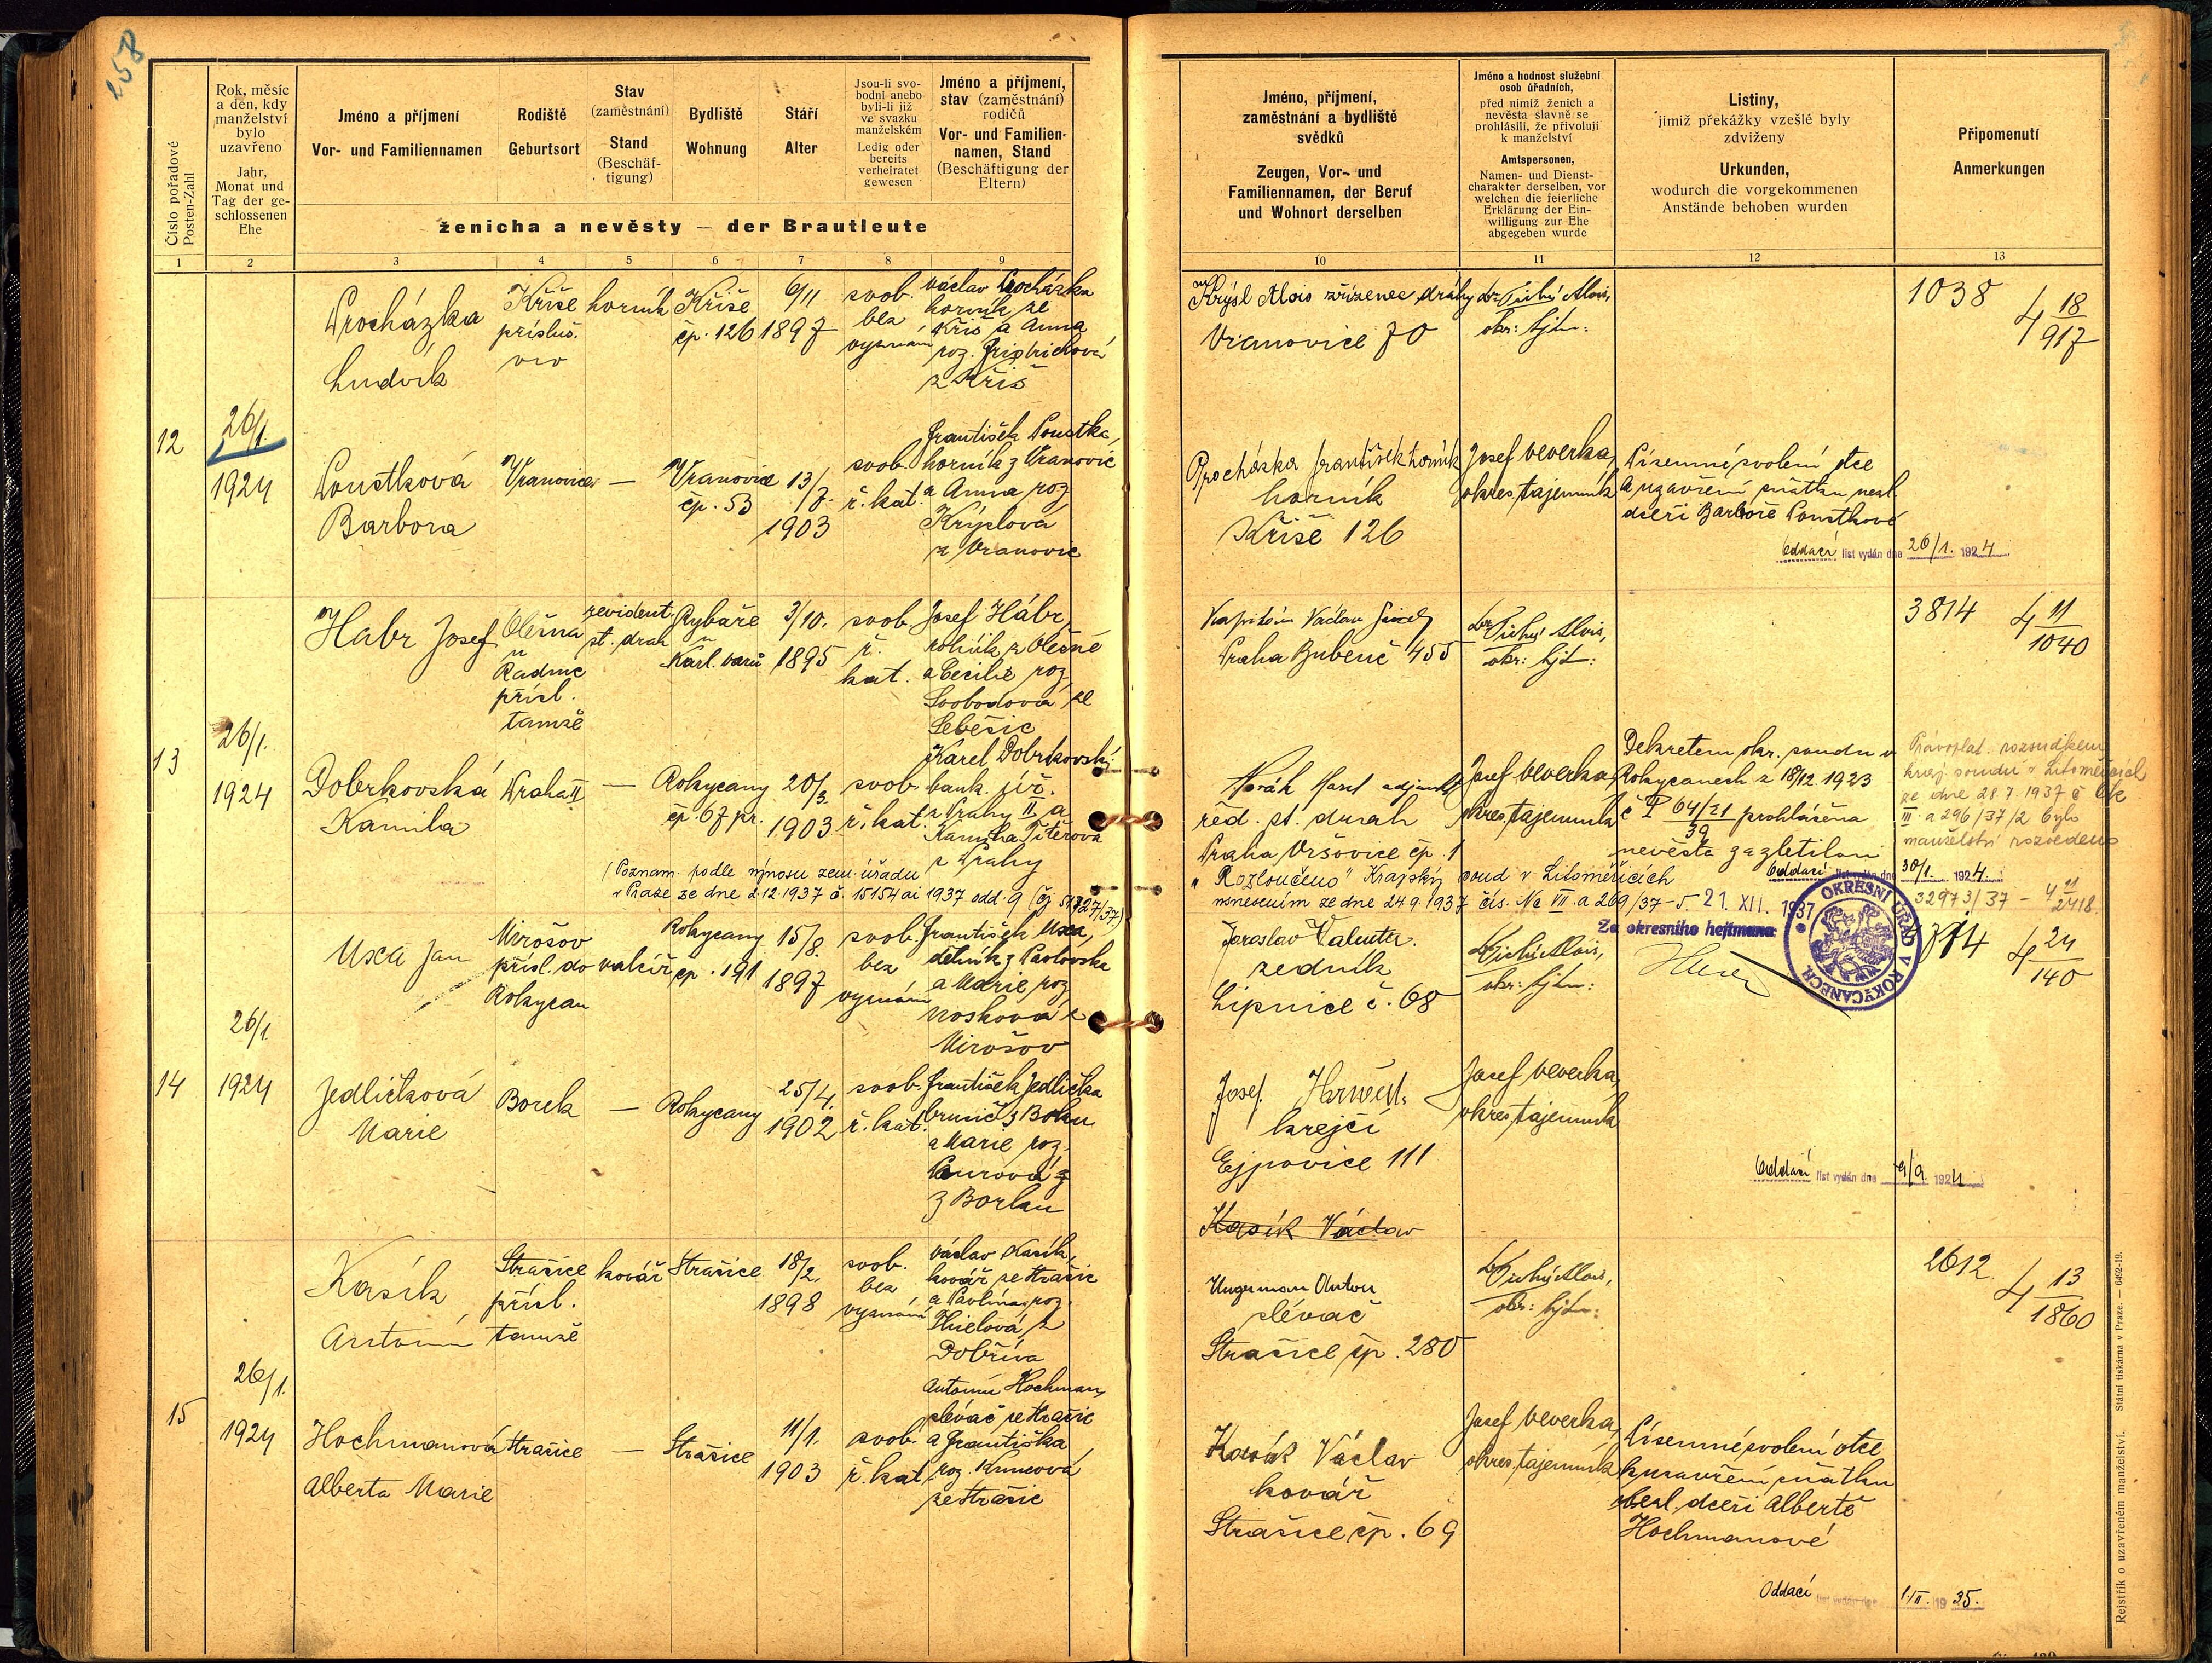 158
Číslo pořadové
Posten-Zahl
Rok, měsíc
a den, kdy
manželství
bylo
uzavřeno
Jahr,
Monat und
Tag der ge-
schlossenen
Ehe
Jméno a příjmení
Vor- und Familiennamen
Rodiště
Geburtsort
Stav
(zaměstnání)
Stand
(Beschäf-
tigung)
Bydliště
Wohnung
Stáří
Alter
Jsou-li svo-
bodni anebo
byli-li již
ve svazku
manželském
Ledig oder
bereits
verheiratet
gewesen
Jméno a příjmení,
stav (zaměstnání)
rodičů
Vor- und Familien-
namen, Stand
(Beschäftigung der
Eltern)
ženicha a nevěsty — der Brautleute
1 2 3 4 5 6 7 8 9
12
26/1.
1924
Procházka
Ludvík
Kříše
přísluš.
horník
Kříše
čp. 126
6/11
1897
svob.
bez
vyznání
Václav Procházka
horník ze
Kříš a Anna
roz.
z Kříš
Poustková
Barbora
Vranovice
—
Vranovice
čp. 53
13/7.
1903
svob.
ř. kat.
František Poustka,
horník z Vranovic
a Anna roz.
Krýslová
z Vranovic
13
26/1.
1924
Habr Josef
Olešna
u
Radnic
přísl.
tamže
revident
st. drah
Rybáře
u
Karl. Varů
3/10.
1895
svob.
ř.
kat.
Josef Hábr,
rolník z Olešné
a Cecilie roz.
Svobodová ze
Seběšic
Dobrkovská
Kamila
Praha II
—
Rokycany
čp. 67 pr.
20/3.
1903
svob.
ř. kat.
Karel Dobrkovský
bank. úř.
z Prahy II a
Kamila
z Prahy
Poznam. podle výnosu zem. úřadu
v Praze ze dne 2.12.1937 č. 15154 ai 1937 odd. 9
14
26/1.
1924
Uxa Jan
Mirošov
přísl. do
Rokycan
valcíř
Rokycany
čp. 191
15/8.
1897
svob.
bez
vyznání
František Uxa,
dělník z Pavlovska
a Marie roz.
Nosková z
Mirošov
Jedličková
Marie
Borek
—
Rokycany
25/4.
1902
svob.
ř. kat.
František Jedlička
brusič z Borku
a Marie roz.
z Borku
15
26/1.
1924
Kasík
Antonín
Strašice
přísl.
tamže
kovář
Strašice
18/2.
1898
svob.
bez
vyznání
Václav Kasík,
kovář ze Strašic
a Pavlína roz.
Thielová z
Dobříva
Hochmanová
Alberta Marie
Strašice
—
Strašice
11/1.
1903
svob.
ř. kat.
Antonín Hochman,
slévač ze Strašic
a Františka
roz.
ze Strašic
Jméno, příjmení,
zaměstnání a bydliště
svědků
Zeugen, Vor- und
Familiennamen, der Beruf
und Wohnort derselben
Jméno a hodnost služební
osob úřadních,
před nimiž ženich a
nevěsta slavně se
prohlásili, že přivolují
k manželství
Amtspersonen,
Namen- und Dienst-
charakter derselben, vor
welchen die feierliche
Erklärung der Ein-
willigung zur Ehe
abgegeben wurde
Listiny,
jimiž překážky vzešlé byly
zdviženy
Urkunden,
wodurch die vorgekommenen
Anstände behoben wurden
Připomenutí
Anmerkungen
10 11 12 13
Krýsl Alois zřízenec dráhy
Vranovice 70
Dr. Tichý Alois,
okr. hejtm.
1038
4 18/917
Procházka František horník
horník
Kříše 126
Josef Veverka,
okres. tajemník
Písemné svolení otce
k uzavření sňatku nezl.
dceři Barboře Poustkové
Oddací list vydán dne 26/1. 1924.
Václav
Praha Bubeneč 455
Dr. Tichý Alois,
okr. hejtm.
3814
4 11/1040
Novák Karel adjunkt
řed. st. drah
Praha Vršovice čp. 1
Josef Veverka,
okres. tajemník
Dekretem okr. soudu v
Rokycanech z 18/12. 1923
č P 64/21 prohlášena
39
nevěsta za zletilou
Oddací list vydán dne 30/1. 1924.
Právoplat. rozsudkem
kraj. soudu v Litoměřicích
ze dne 28.7.1937 č Ck
III. a 296/37/2 bylo
manželství rozvedeno
"Rozloučeno" Krajský soud v Litoměřicích
usnesením ze dne 24 9. 1937 čís. Nc VII. a 269/37-5
21. XII. 1937
Za okresního hejtmana:
OKRESNÍ ÚŘAD V ROKYCANECH
32973/37 - 4 11/2418.
Jaroslav Valenta.
zedník
Lipnice č. 68
Dr. Tichý Alois,
okr. hejtm.
314
4 24/140
Josef
krejčí
Ejpovice 111
Josef Veverka,
okres. tajemník
Oddací list vydán dne 9/9. 1924
Kasík Václav
Anton
slévač
Strašice čp. 280
Dr. Tichý Alois,
okr. hejtm.
2612
4 13/1860
Kasík Václav
kovář
Strašice čp. 69
Josef Veverka,
okres. tajemník
Písemné svolení otce
k uzavření sňatku
nezl. dceři Albertě
Hochmanové
Oddací list vydán dne 1./II. 1935.
Rejstřík o uzavřeném manželství. Státní tiskárna v Praze. — 6492-19.